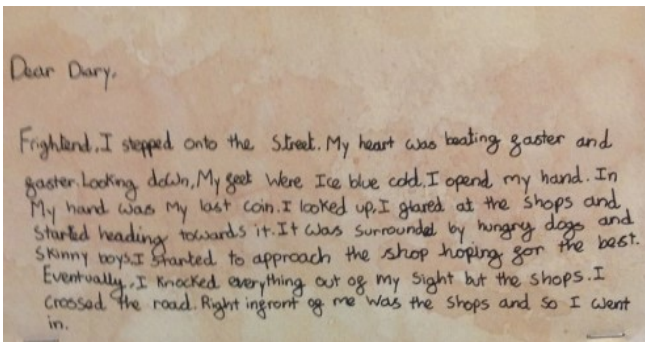 Dear Diary,
Frightend, I stepped onto the Street. My heart was beating faster and
faster. Looking down, My feet Were Ice blue cold, I opend my hand. In
My hand was My last coin. I looked up, I glared at the Shops and
Started heading towards it. It was surrounded by hungry dogs and
Skinny boys. I started to approach the shop hoping for the best.
Eventually, I Knocked everything out of my Sight but the shops. I
Crossed the road. Right infront of me was the Shops and so I went
in.